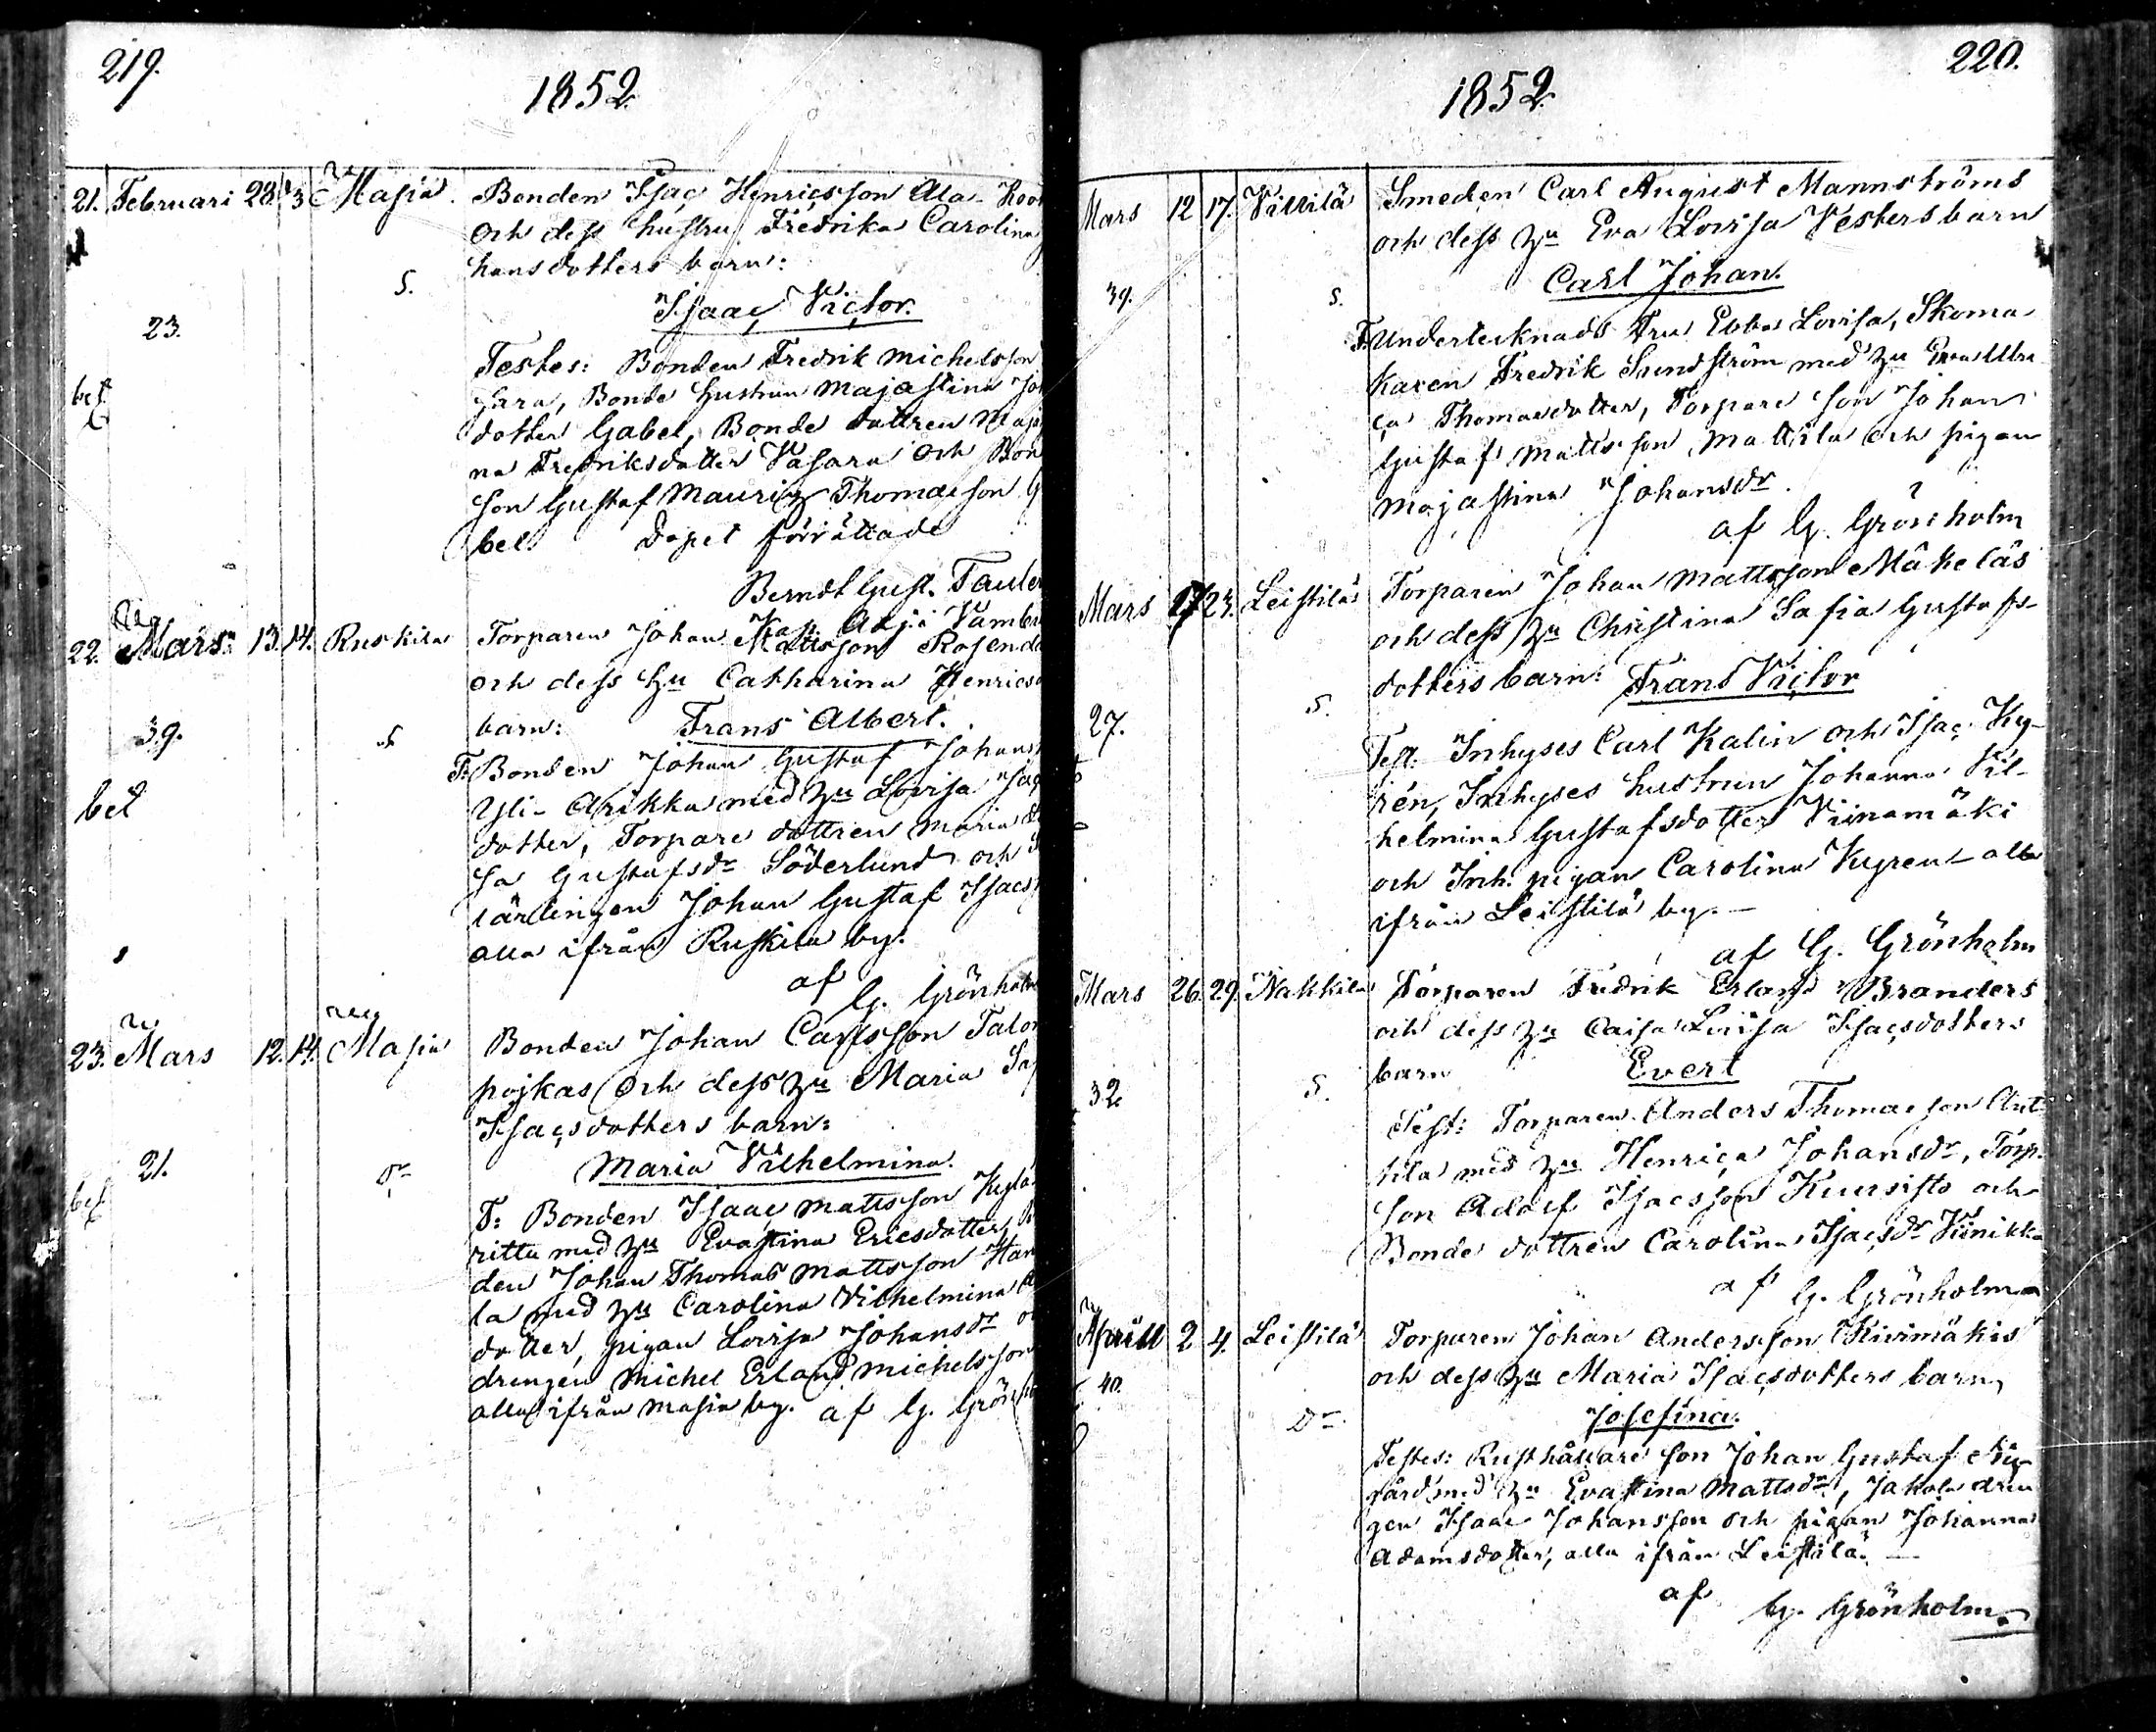 219.
1852
21. Februari 28. 3 Masia. Bonden Isaç Henriçsson Ala-
och dess hustru Fredrika Carolina
hansdotters barn:
S.
Isaaç Viçtor.
23.
Testes: Bonden Fredrik Michelsson
Bonde hustrun Majastina
dotter Gabel, Bonde dottren
na Fredriksdotter Vasara och
son Gustaf Mauritz Thomasson
bel. Dopet förrättade
Berndt Gust.
22. Mars 13. 14. Ruskila Torparen Johan Mattsson
och dess hu Catharina
barn: Frans Albert.
39. S
F: Bonden Johan Gustaf
Yli-Arikka med hu Lovisa
bet
dotter, Torpare dottren Maria
sa Gustafsdr Söderlund och
lärlingen Johan Gustaf
alla ifrån Ruskila by.
af
G. Grönholm
23. Mars 12. 14. Masia Bonden Johan Carlsson
pojkas och dess hu Maria
Isaçsdotters barn:
21. Dr
Maria Vilhelmina.
F: Bonden Isaaç Mattsson
ritta med hu Evastina Ericsdotter,
den Johan Thomas Mattsson
la med hu Carolina Vilhelmina
dotter, pigan Lovisa Johansdr
drengen Michel Erland Michelsson
alla ifrån Masia by. af G.
220.
1852
Mars 12 17. Villilä Smeden Carl August Mannströms
och dess hu Eva Lovisa Vesters barn
Carl Johan.
39. S.
F. Undertecknads Fru Ebba Lovisa, Skoma
karen Fredrik Sundström med hu
ça Thomasdotter, Torpare son Johan
Gustaf Mattsson Mattila och pigan
Majastina Johansdr.
af G. Grönholm
Mars 23. Leistilä Torparen Johan Mattsson Mäkeläs
och dess hu Christina Safia Gustafs-
dotters barn: Frans Viçtor
27. S.
Test: Inhyses Carl Kalin och Isaç Ky-
rén, Inhyses hustrun Johanna Vil-
helmina Gustafsdotter Viinamäki
och Inh. pigan Carolina Kyren alla
ifrån Leistilä by.
af G. Grönholm
Mars 26. 29. Nakkila Torparen Fredrik Erland Branders
och dess hu Caisa Lovisa Isaçsdotters
barn Evert
32. S.
Test: Torparen Anders Thomasson Ant
tila med hu Henriça Johansdr, Torp.
son Adolf Isacsson Kuusisto och
Bonde dottren Carolina Isaçsdr Viinikka
af G. Grönholm
Aprill 2 4. Leistilä Torparen Johan Andersson Kivimäkis
och dess hu Maria Isaçsdotters barn
40. Dr
Josefina.
Testes: Rusthållare son Johan Gustaf Ny-
gård med hu Evastina Mattsdr, Jakola dren
gen Isaac Johansson och pigan Johanna
Adamsdotter, alla ifrån Leistilä.
af
G. Grönholm.